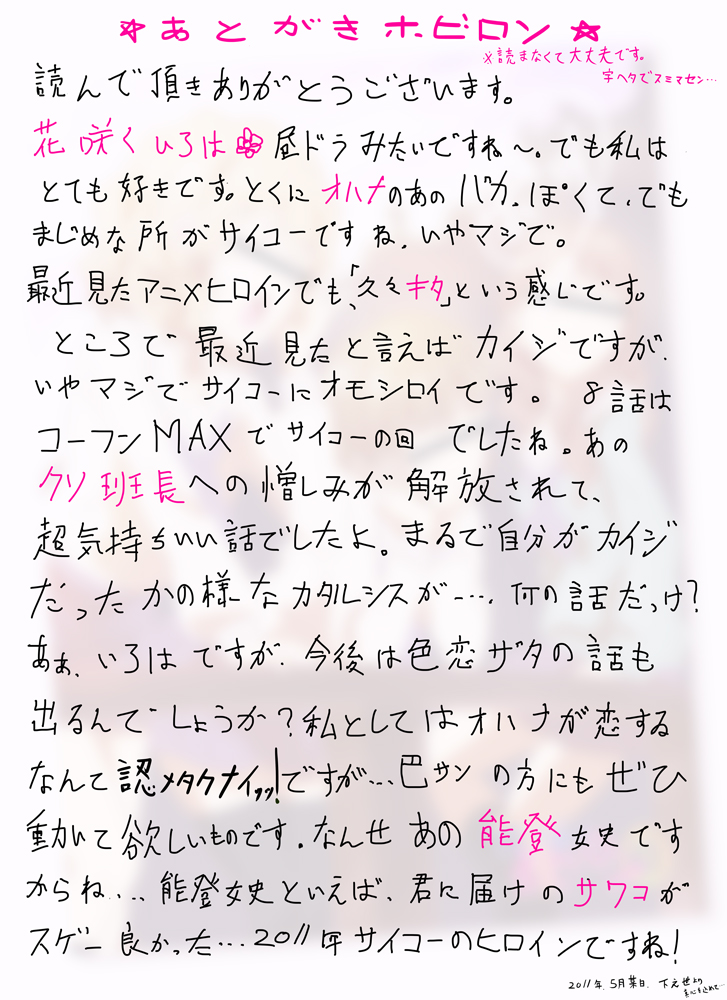 ☆あとがきホビロン☆
※読まなくて大丈夫です。
字ヘタでスミマセン…
読んで頂きありがとうございます。
花咲くいろは 昼ドラみたいですね〜。でも私は
とても好きです。とくにオハナのあのバカっぽくて、でも
まじめな所がサイコーですね、いやマジで。
最近見たアニメヒロインでも、「久々キタ」という感じです。
ところで最近見たと言えばカイジですが、
いやマジでサイコーにオモシロイです。 8話は
コーフンMAXでサイコーの回でしたね。あの
クソ班長への憎しみが解放されて、
超気持ちいい話でしたよ。まるで自分がカイジ
だったかの様なカタルシスが…、何の話だっけ?
あぁ、いろはですが、今後は色恋ザタの話も
出るんでしょうか?私としてはオハナが恋する
なんて認メタクナイッッ!ですが…巴サンの方にもぜひ
動いて欲しいものです。なんせあの能登女史です
からね…、能登女史といえば、君に届けのサワコが
スゲー良かった…2011年サイコーのヒロインですね!
2011年、5月某日、下え世より